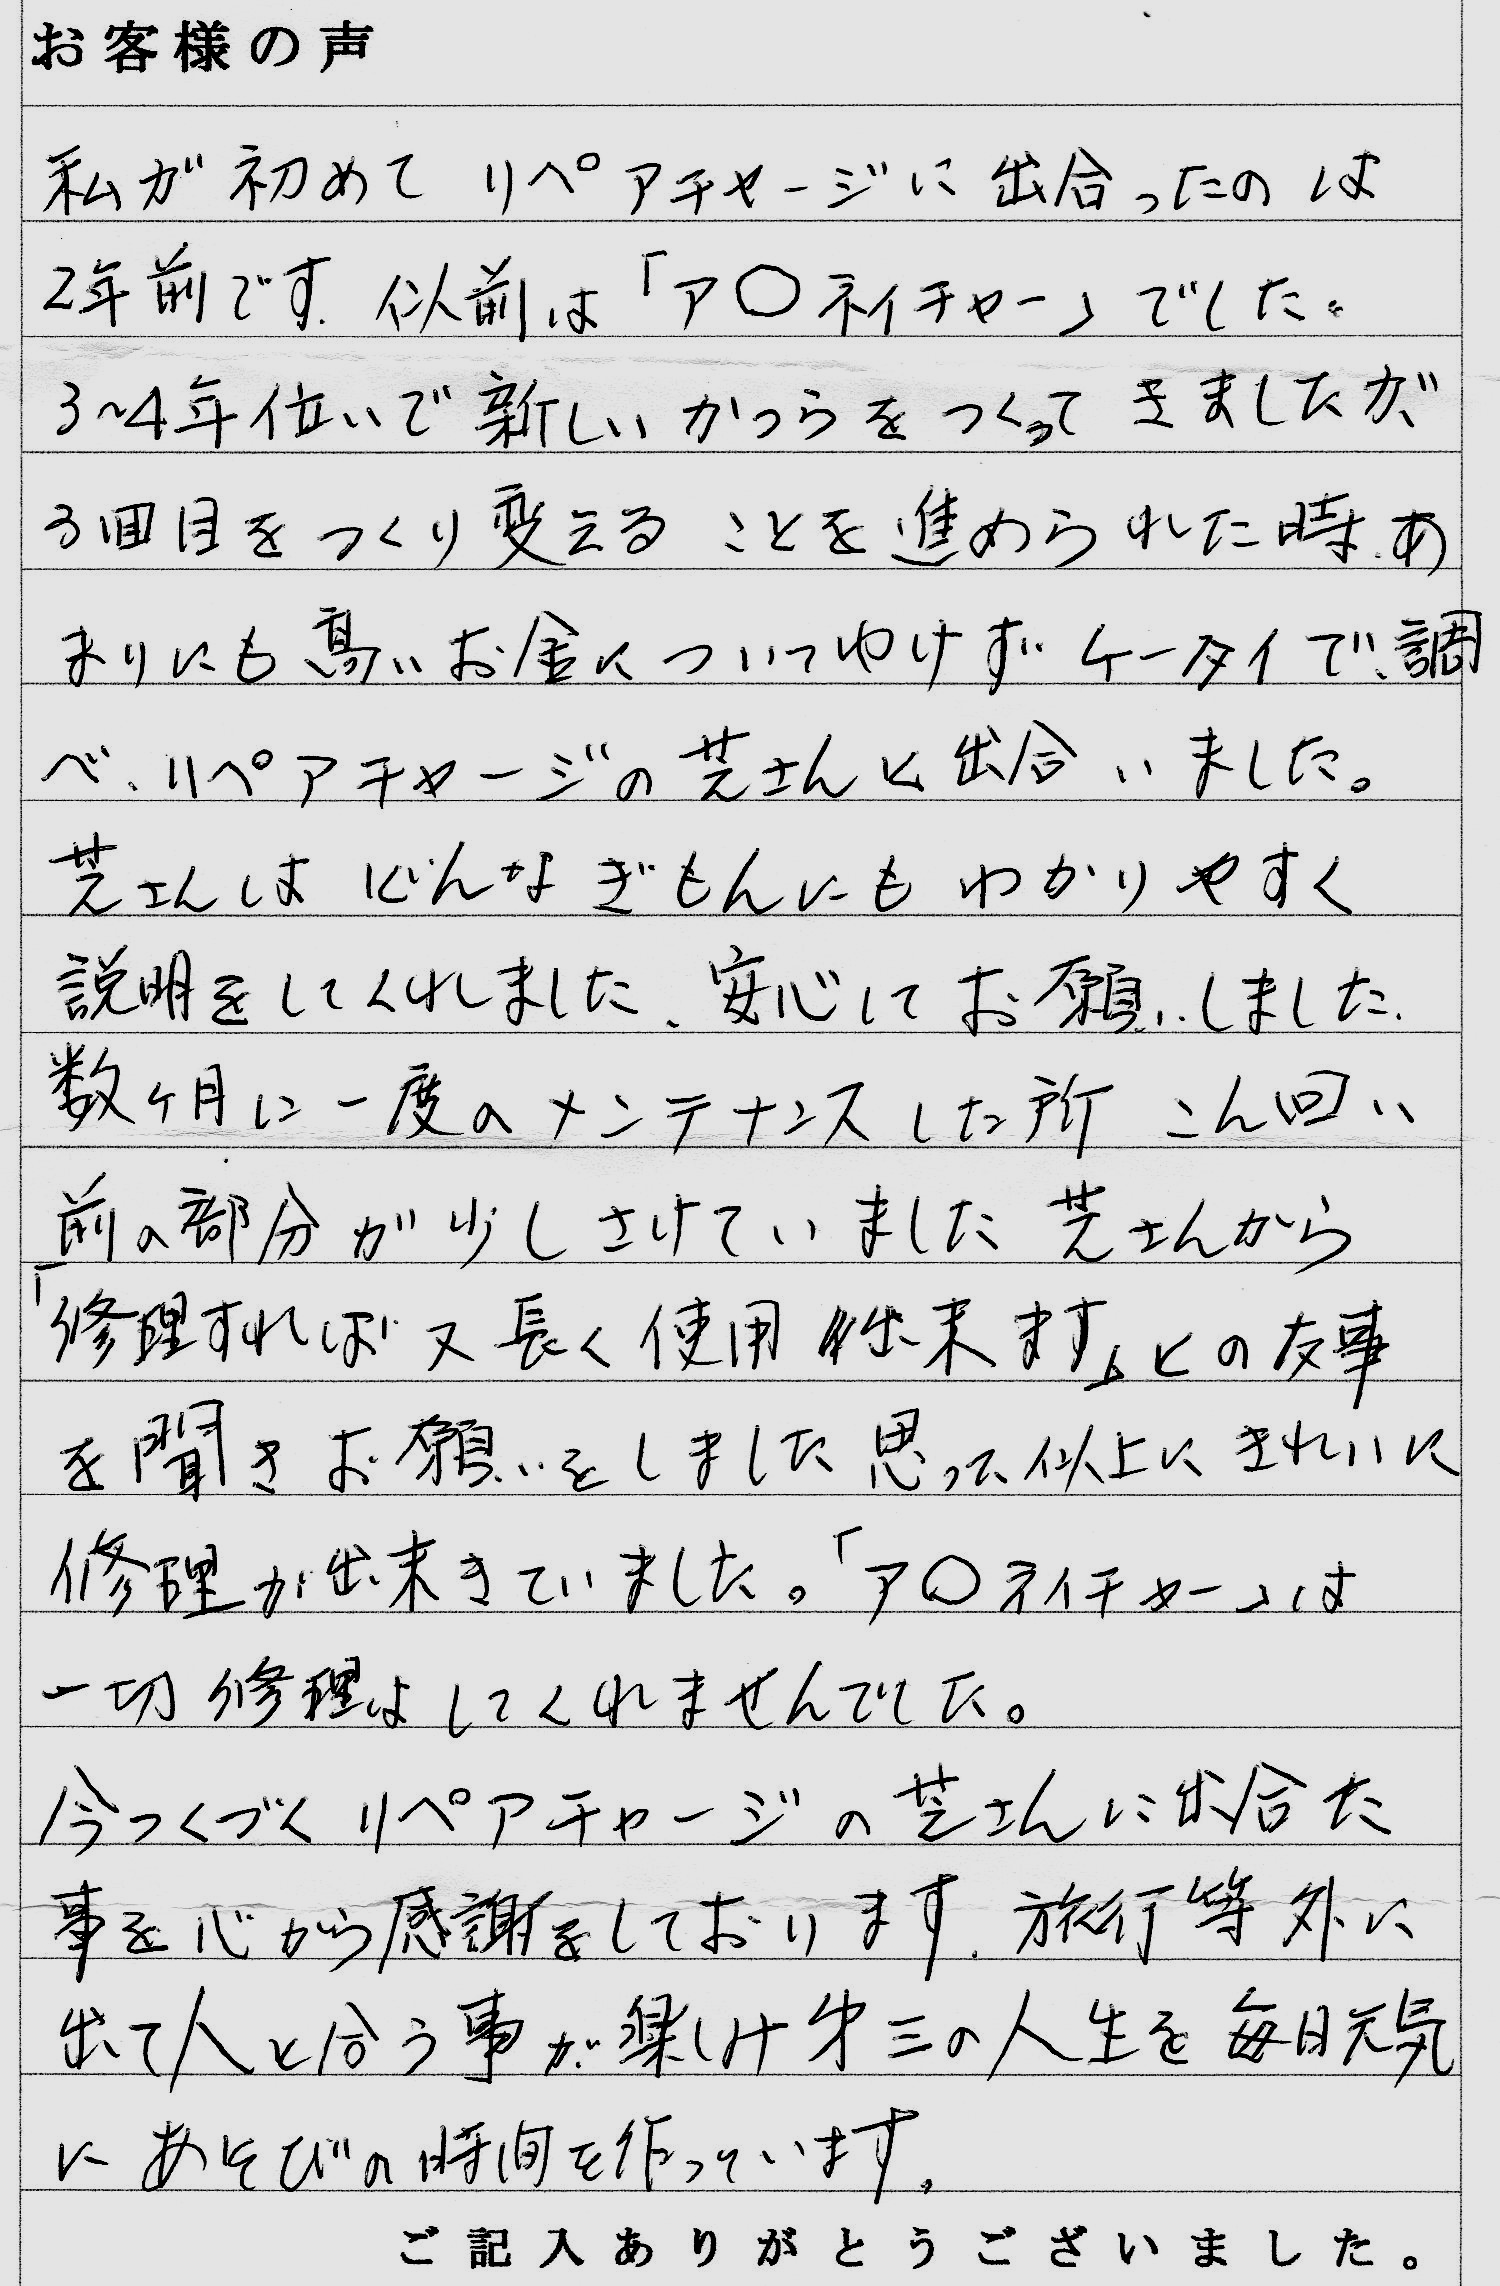 お客様の声
私が初めて リペアチャージに出合ったのは
2年前です. 似前は「ア〇ネイチャー」でした。
3~4年位いで新しいかつらをつくってきましたが、
3回目をつくり変えることを進められた時、あ
まりにも高いお金についてゆけずケータイで、調
べ、リペアチャージの芝さんと出合いました。
芝さんは どんなぎもんにもわかりやすく
説明をしてくれました、安心してお願いしました.
数ヶ月に一度のメンテナンスした所 こん回い
前の部分が少しさけていました 芝さんから
「修理すれば又長く使用 出来ます」との友事
を聞きお願いをしました 思った似上にきれいに
修理が出来きていました。「ア〇ネイチャー」は
一切修理はしてくれませんでした。
今つくづくリペアチャージの芝さんに出合た
事を心から感謝をしております. 旅行等外に
出て人と合う事が楽しみ 第三の人生を毎日元気
にあそびの時間を作っています。
ご記入ありがとうございました。